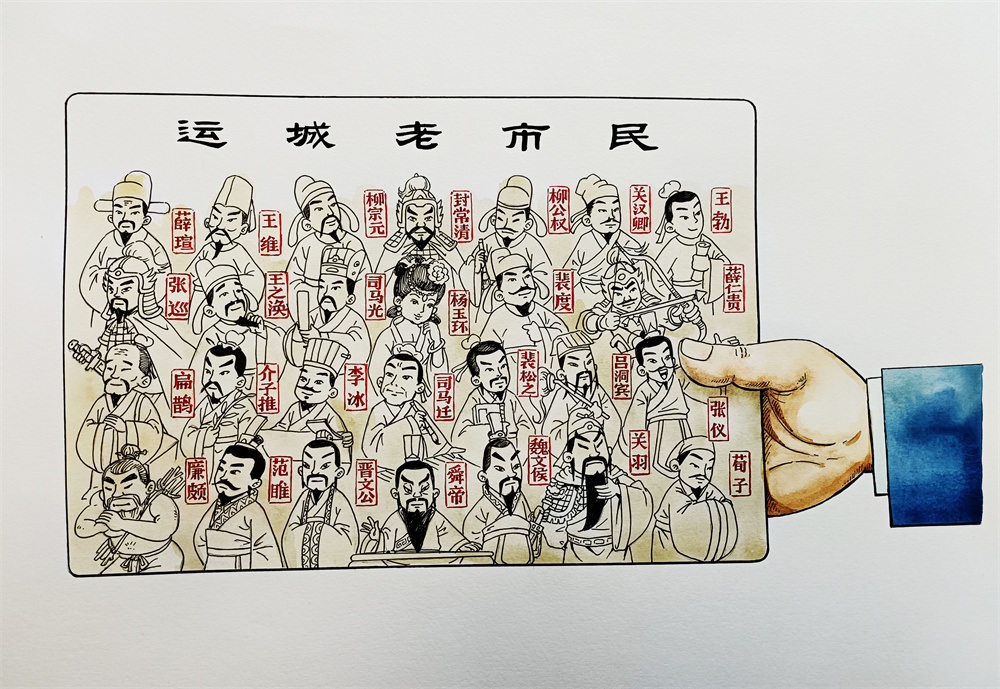 运城老市民
薛瑄
王维
柳宗元
封常清
柳公权
关汉卿
王勃
张巡
王之涣
司马光
杨玉环
裴度
薛仁贵
扁鹊
介子推
李冰
司马迁
裴松之
吕洞宾
张仪
廉颇
范雎
晋文公
舜帝
魏文侯
关羽
荀子